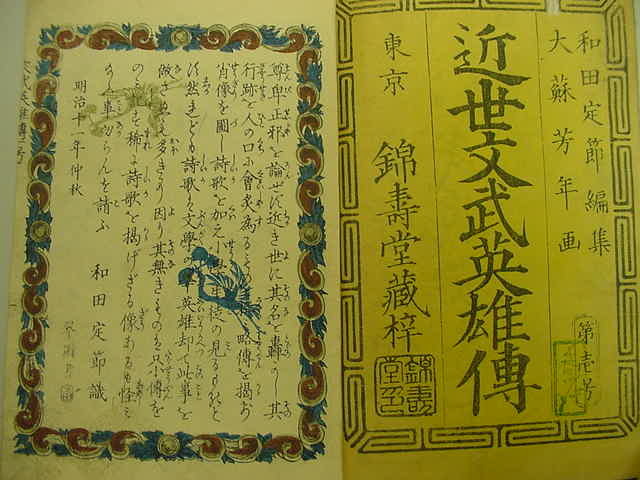 和田定節編集
大蘇芳年画
近世文武英雄傳
第壱号
東京 錦壽堂藏梓
錦壽堂
尊卑正邪を論せず近き世に其名を轟かし其
行跡を人の口に會炙為る 略傳を揭げ
肖像を圖し詩歌を加え 見る
然きども詩歌は文學の 英雄却て此事を
做ざるも多きより因り其無きものは只小傳を
のミ 稀に詩歌を揭げざる像あるも怪ミ
事勿らんを請ふ 和田定節識
明治十一年仲秋